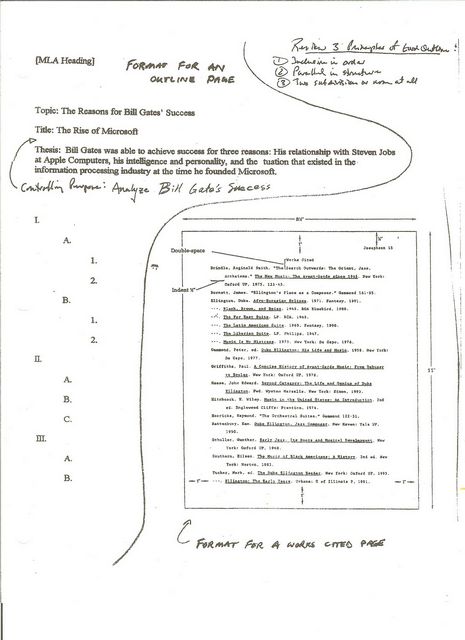 [MLA Heading]
FORMAT FOR AN
OUTLINE PAGE
Review 3 Principles of Good Outline:
① Inclusive in order
② Parallel in structure
③ Two subdivisions or none at all
Topic: The Reasons for Bill Gates' Success
Title: The Rise of Microsoft
Thesis: Bill Gates was able to achieve success for three reasons: His relationship with Steven Jobs
at Apple Computers, his intelligence and personality, and the tuation that existed in the
information processing industry at the time he founded Microsoft.
Controlling Purpose: Analyze Bill Gate's Success
I.
A.
1.
2.
B.
1.
2.
II.
A.
B.
C.
III.
A.
B.
8½"
½"
Josephson 15
Double-space
Works Cited
Brindle, Reginald Smith. "The Search Outwards: The Orient, Jazz,
Archaisms." The New Music: The Avant-Garde since 1945. New York:
Indent ½"
Oxford UP, 1975. 133-45.
Burnett, James. "Ellington's Place as a Composer." Gammond 141-55.
Ellington, Duke. Afro-Eurasian Eclipse. 1971. Fantasy, 1991.
---. Black, Brown, and Beige. 1945. RCA Bluebird, 1988.
---. The Far East Suite. LP. RCA, 1965.
---. The Latin American Suite. 1969. Fantasy, 1990.
---. The Liberian Suite. LP. Philips, 1947.
---. Music Is My Mistress. 1973. New York: Da Capo, 1976.
Gammond, Peter, ed. Duke Ellington: His Life and Music. 1958. New York:
Da Capo, 1977.
Griffiths, Paul. A Concise History of Avant-Garde Music: From Debussy
to Boulez. New York: Oxford UP, 1978.
Hasse, John Edward. Beyond Category: The Life and Genius of Duke
Ellington. Fwd. Wynton Marsalis. New York: Simon, 1993.
Hitchcock, H. Wiley. Music in the United States: An Introduction. 2nd
ed. Englewood Cliffs: Prentice, 1974.
Horricks, Raymond. "The Orchestral Suites." Gammond 122-31.
Rattenbury, Ken. Duke Ellington, Jazz Composer. New Haven: Yale UP,
1990.
Schuller, Gunther. Early Jazz: Its Roots and Musical Development. New
York: Oxford UP, 1968.
Southern, Eileen. The Music of Black Americans: A History. 2nd ed. New
York: Norton, 1983.
Tucker, Mark, ed. The Duke Ellington Reader. New York: Oxford UP, 1993.
---. Ellington: The Early Years. Urbana: U of Illinois P, 1991.
1"
1"
11"
FORMAT FOR A WORKS CITED PAGE